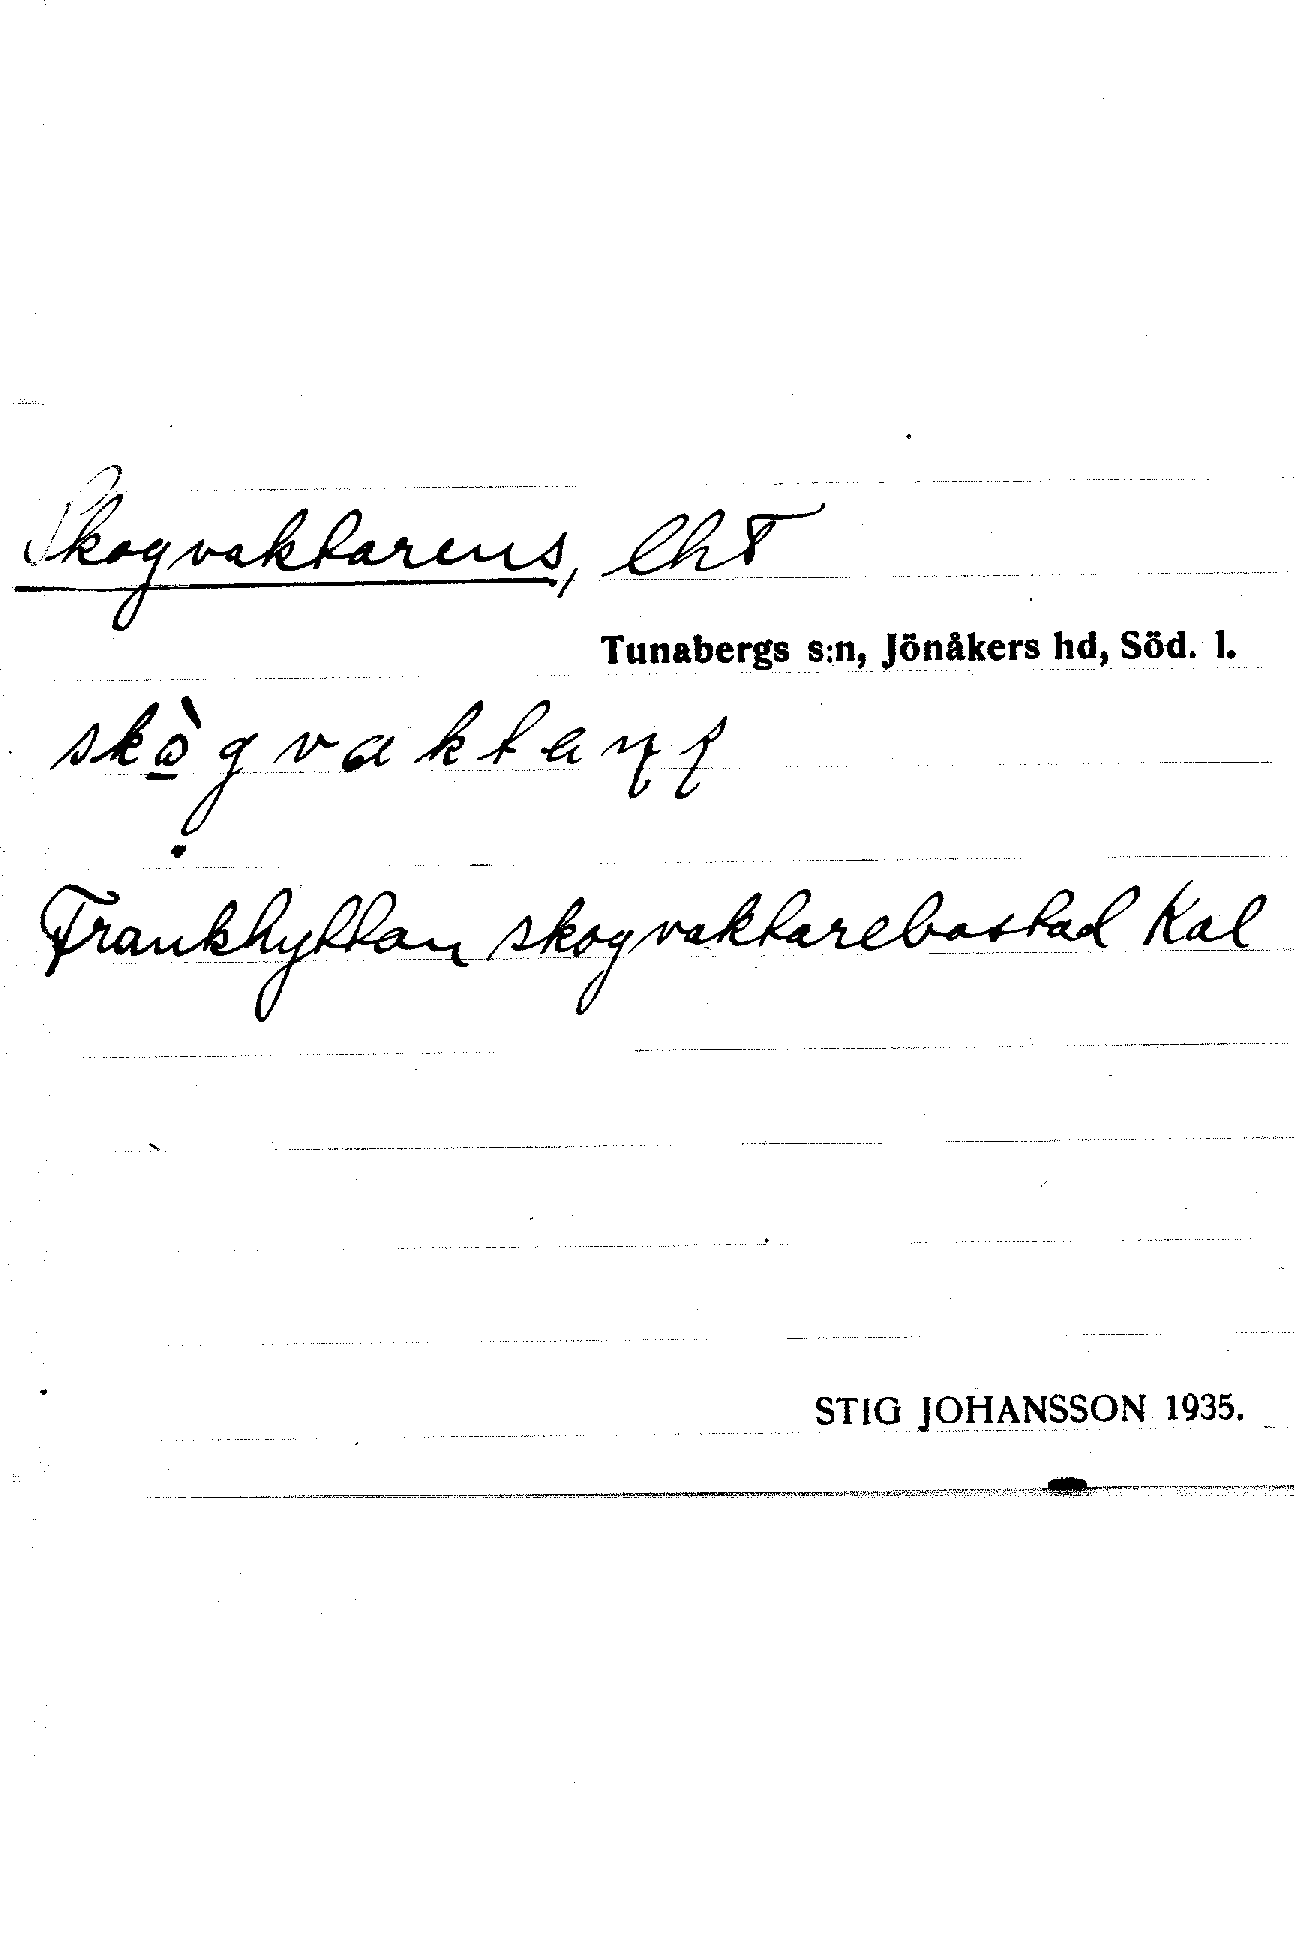 Skogvaktarens, lht
Tunabergs s:n, Jönåkers hd, Söd. l.
Frankhyttan skogvaktarebostad Kal
STIG JOHANSSON 1935.